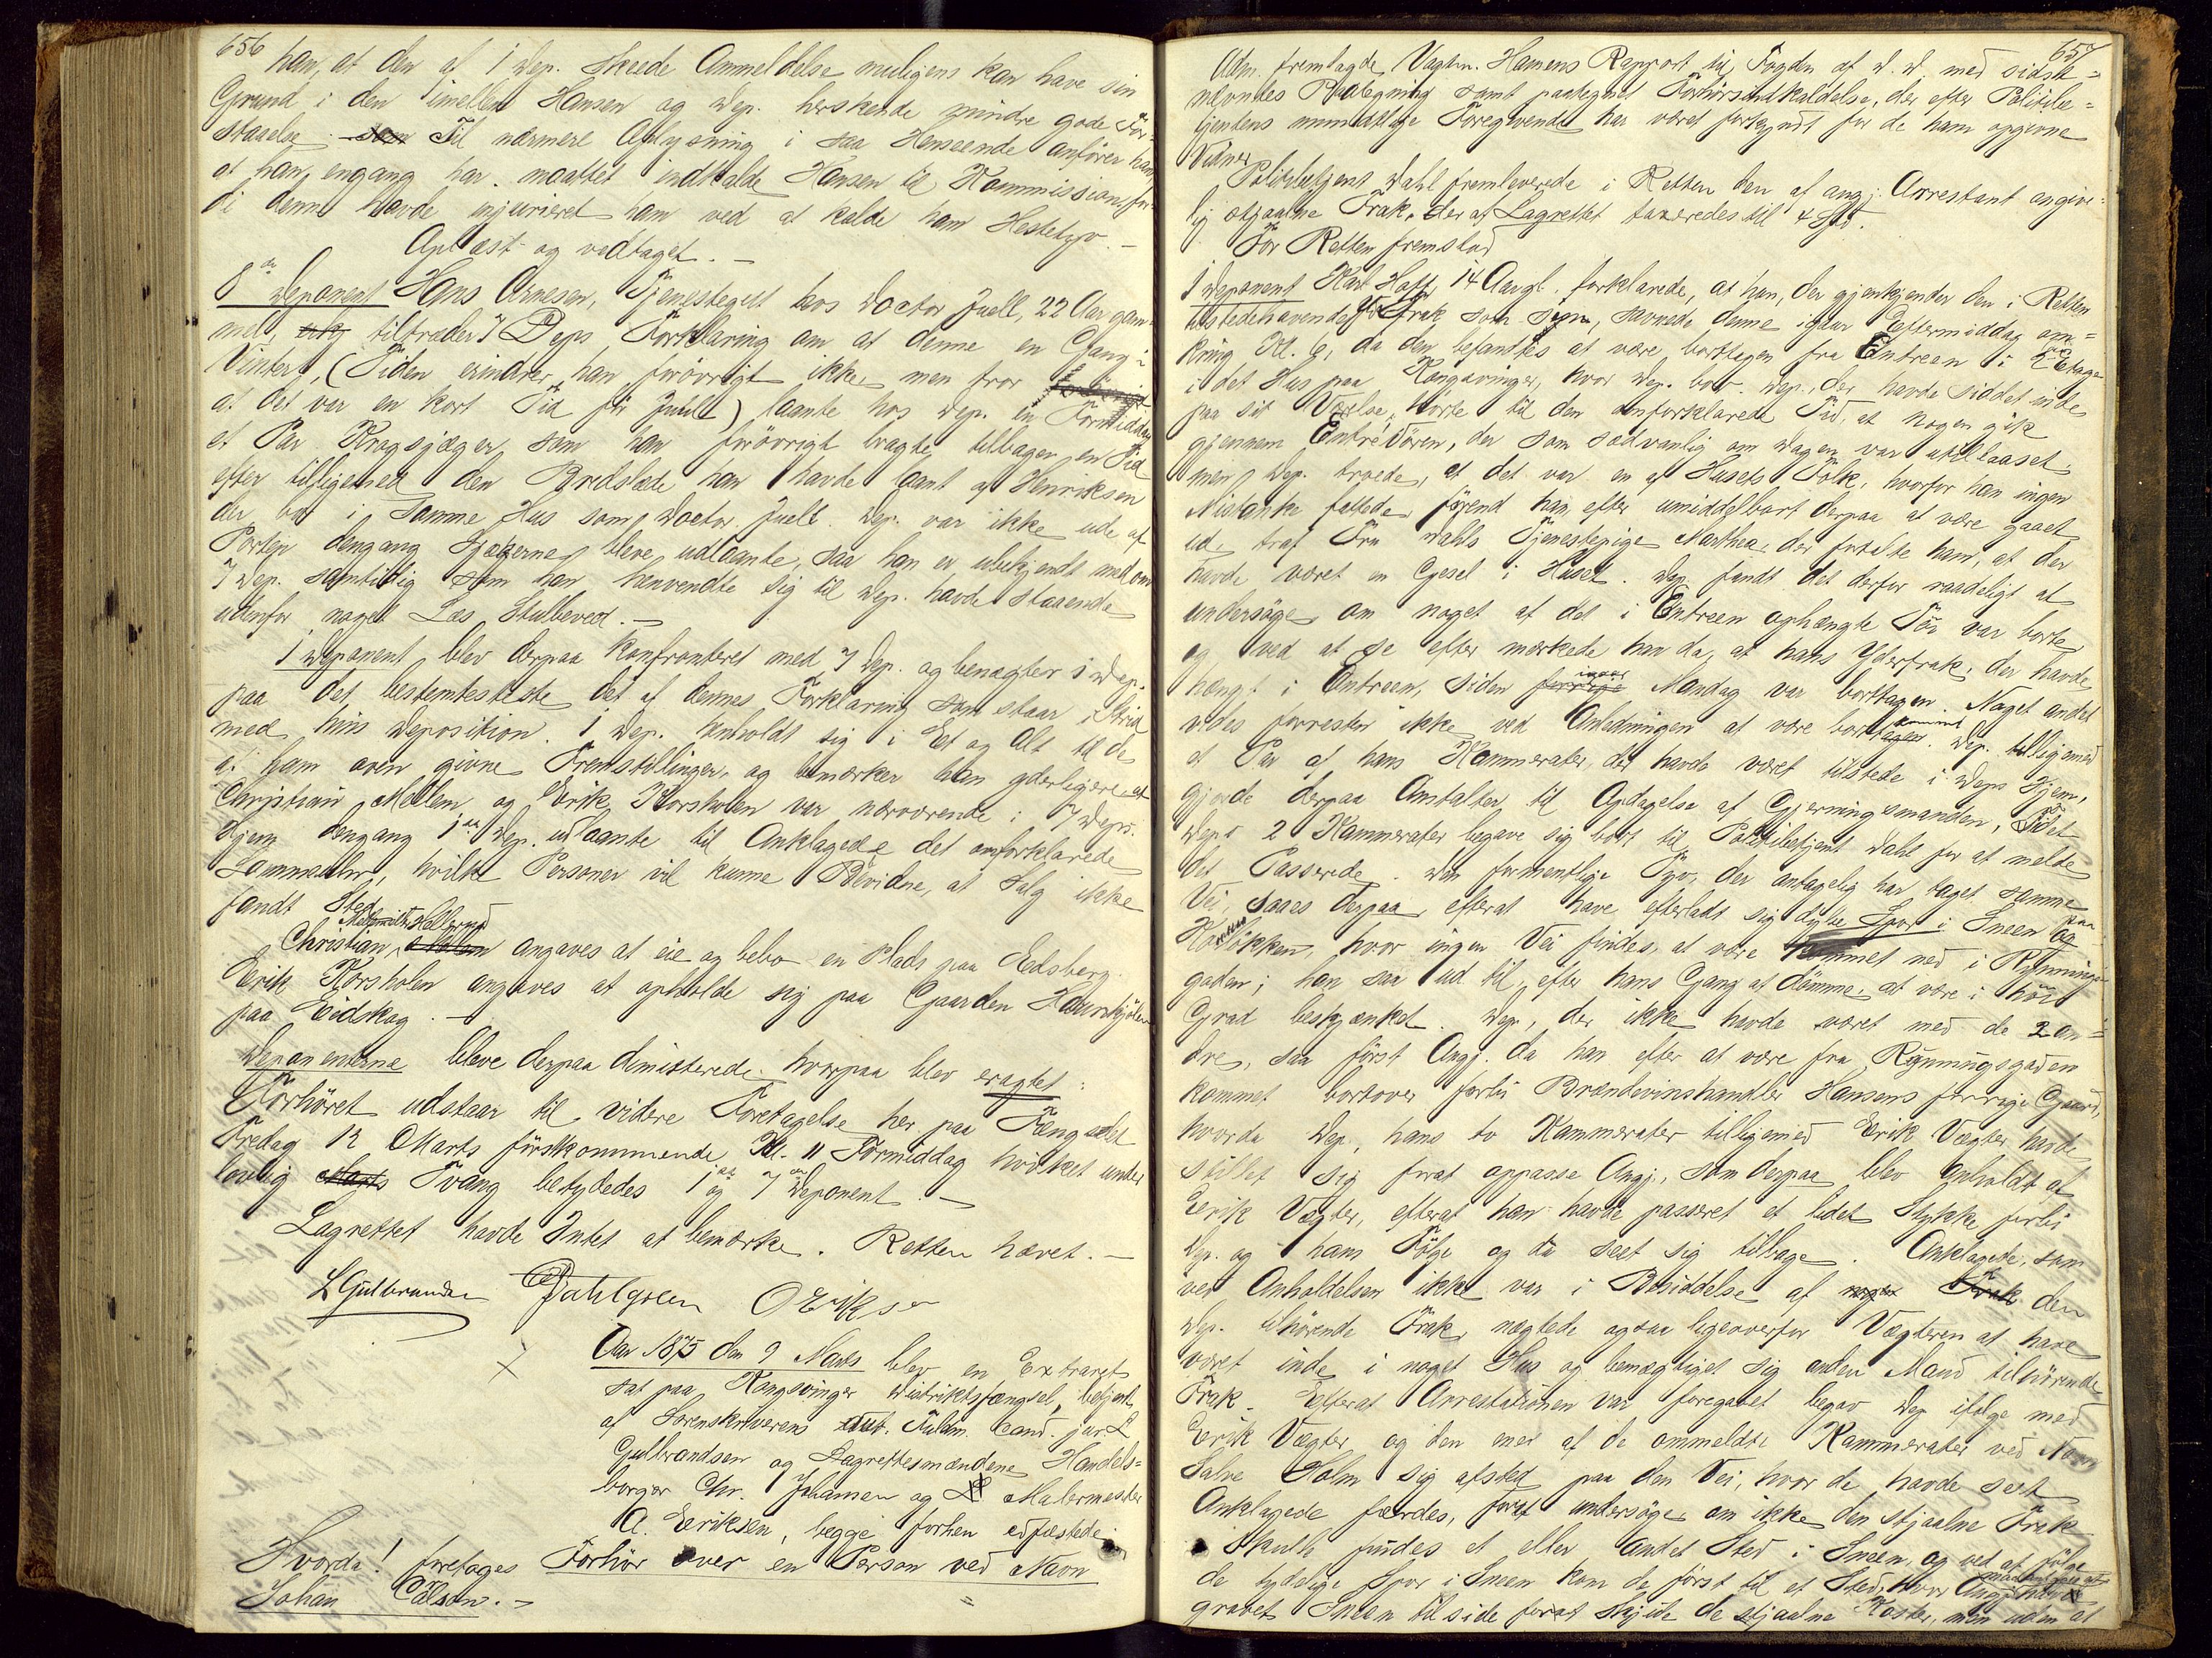 656
han, at den af 1 Dep. skeede Anmeldelse muligens kan have sin
Grund i den imellem Hansen og Dep. herskende mindre gode For-
staaelse. Til nærmere Oplysning i saa Henseende anfører han
at han engang har maattet indkalde Hansen til Kommission for-
di denne havde injurieret ham ved at kalde ham Hestetyv. –
Oplæst og vedtaget. –
8de Deponent Hans Arnesen, Tjenestegut hos Doctor Juell, 22 Aar gam-
mel, tiltræder 7 Deps Forklaring om at denne en Gang i
Vinter, (Tiden erindrer han forøvrigt ikke men tror
at det var en kort Tid før Juul) laante hos Dep. en Formiddag
et Par Krogsjæger, som han forøvrigt bragte tilbage en Tid
efter tilligemed den Bredslæde han havde laant af Henriksen
der bor i samme Hus som Doctor Juell. Dep. var ikke ude af
Porten dengang Sjægerne bleve udlaante, saa han er ubekjendt med om
7 Dep. samtidig som han henvendte sig til Dep. havde staaende
udenfor noget Læs Stubbeved. –
1 Deponent blev derpaa konfronteret med 7 Dep. og benægter 1 Dep.
paa det bestemtesteste det af dennes Forklaring som staar i Strid
med hins Deposition. 1 Dep. henholdt sig i Et og Alt til de
af ham oven givne Fremstillinger, og bemærker han yderligere at
Christian Mellem og Erik Korsholen var nærværende i 7 Deps.
Hjem dengang 1ste Dep. udlaante til Anklagede det omforklarede
Tømmer, hvilke Personer vil kunne Bevidne, at Salg ikke
fandt Sted
Christian angaves at eie og bebo en Plads paa Edsberg.
Erik Korsholen angaves at opholde sig paa Gaarden
paa Eidskog. –
Deponenterne bleve derpaa dimitterede. hvorpaa blev eragtet:
Forhøret udstaar til videre Foretagelse her paa Fængslet
Fredag 12 Marts førstkommende Kl. 11 Formiddag hvilket under
lovlig Tvang betydedes 1ste og 7de Deponent. –
Lagrettet havde Intet at bemærke. Retten hævet. –
L Gulbrandsen Dahlgreen O Eriksen
Aar 1875 den 9 Marts blev en Extraret
sat paa Kongsvinger Distriktsfængsel, betjent
af Sorenskriverens Fuldm. Cand. jur. L
Gulbrandsen og Lagrettesmændene Handels-
borger Chr. Johansen og Malermester
A. Eriksen, begge forhen edfæstede
Hvorda! foretages Forhør over en Person ved Navn
Johan Carlson. –
657
Adm. fremlagde Vagtm. Hamens Rapport til Fogden af D. D. med sidst-
nævntes Paategning samt paategnet Forhørsindkaldelse, der efter Politibe-
tjentens mundtlige Foregivende har været forkyndt for de ham opgivne
Vidner
Politibetjent Dahl fremleverede i Retten den af angj. Arrestant angive-
lig stjaalne Frak, der af Lagrettet taxeredes til 4 Spd.
For Retten fremstod
1 Deponent Karl Hoff, 14 Aar gl. forklarede, at han, der gjenkjender den i Retten
tilstedehavende Yderfrak som sin, savnede denne igaar Eftermiddag om-
kring Kl. 6, da den befandtes at være borttagen fra Entreen i 2den Etage
i det Hus paa Kongsvinger, hvor Dep. bor. Dep., der havde siddet inde
paa sit Værelse, hørte til den omforklarede Tid, at nogen gik
gjennem Entrédøren, der som sædvanlig om Dagen var utillaaset;
men Dep. troede, at det var en af Husets Folk, hvorfor han ingen
Mistanke fattede, førend han, efter umiddelbart derpaa at være gaaet
ud, traf Fru Dahls Tjenestepige Marthea, der fortalte ham, at der
havde været en Gjesel i Huset. Dep. fandt det derfor raadeligt at
undersøge om noget af det i Entreen ophængte Tøi var borte
og ved at se efter mærkede han da, at hans Yderfrak, der havde
hængt i Entreen, siden Mandag var borttagen. Noget andet
vides forresten ikke ved Anledningen at være bortkommet. Dep. tilligemed
et Par af hans Kammerater, der havde været tilstede i Deps Hjem,
gjorde derpaa Anstalter til Opdagelse af Gjerningsmanden, idet
Deps 2 Kammerater begave sig bort til Politibetjent Dahl for at melde
det Passerede. Den formentlige Tyv, der antagelig har taget samme
Vei, saaes derpaa, efterat have efterladt sig dybe Spor i Sneen paa
løkken, hvor ingen Vei findes, at være kommet ned i Rynnings-
gaden; han saa ud til, efter hans Gang at dømme, at være i høi
Grad beskjænket. Dep., der ikke havde været med de 2 an-
dre, saa først Angj. da han efter at være fra Rynningsgaden
kommet bortover forbi Brændevinshandler Hansens forrige Gaard,
hvorda Dep., hans to Kammerater tilligemed Erik Vægter havde
stillet sig forat oppasse Angj., som derpaa blev anholdt af
Erik Vægter, efterat han havde passeret et lidet Stykke forbi
Dep. og hans Følge og da seet sig tilbage. Anklagede, som
ved Anholdelsen ikke var i Besiddelse af den
Dep. tilhørende Frak, nægtede ogsaa ligeoverfor Vægteren at have
været inde i noget Hus og bemægtiget sig anden Mand tilhørende
Frak. Efterat Arrestationen var foregaaet begav Dep ifølge med
Erik Vægter og den ene af de ommeldte Kammerater ved Navn
Salve Holm sig afsted paa den Vei, hvor de havde seet
Anklagede færdes, forat undersøge om ikke den stjaalne Frak
skulle findes et eller andet Sted i Sneen, og ved at følge
de tydelige Spor i Sneen kom de først til et Sted, hvor Angj. havde
gravet Sneen tilside forat skjule de stjaalne Koster, men uden at